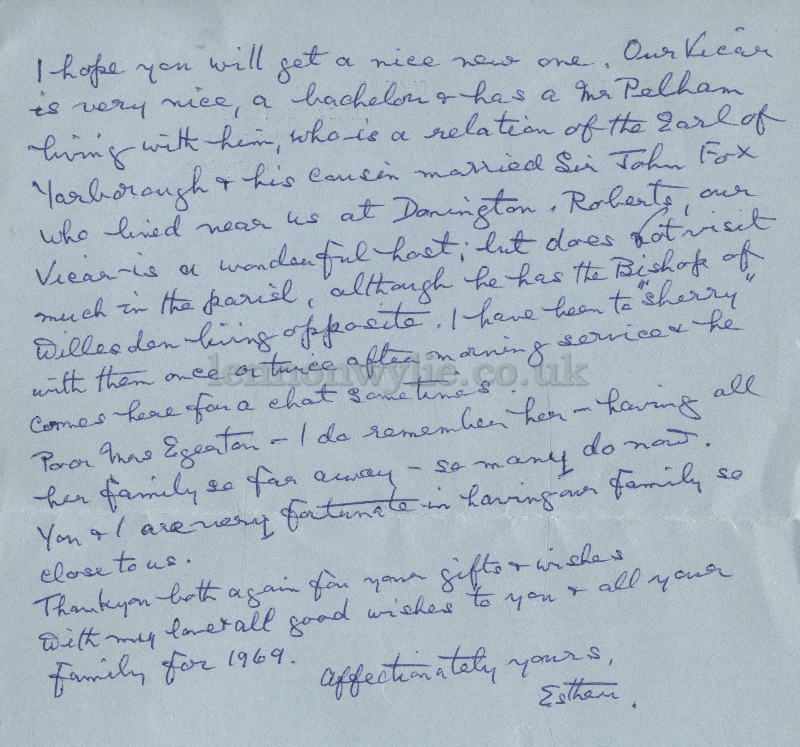 I hope you will get a nice new one. Our Vicar
is very nice, a bachelor & has a Mr Pelham
living with him, who is a relation of the Earl of
Yarborough & his cousin married Sir John Fox
who lived near us at Donington. Roberts, our
Vicar is a wonderful host; but does not visit
much in the parish, although he has the Bishop of
Willesden living opposite. I have been to "sherry"
with them once or twice after morning service & he
comes here for a chat sometimes.
Poor Mrs Egerton - I do remember her - having all
her family so far away - so many do now.
You & I are very fortunate in having our family so
close to us.
Thankyou both again for your gifts & wishes
With my love & all good wishes to you & all your
family for 1969.
Affectionately yours,
Esther.
lennonwylie.co.uk